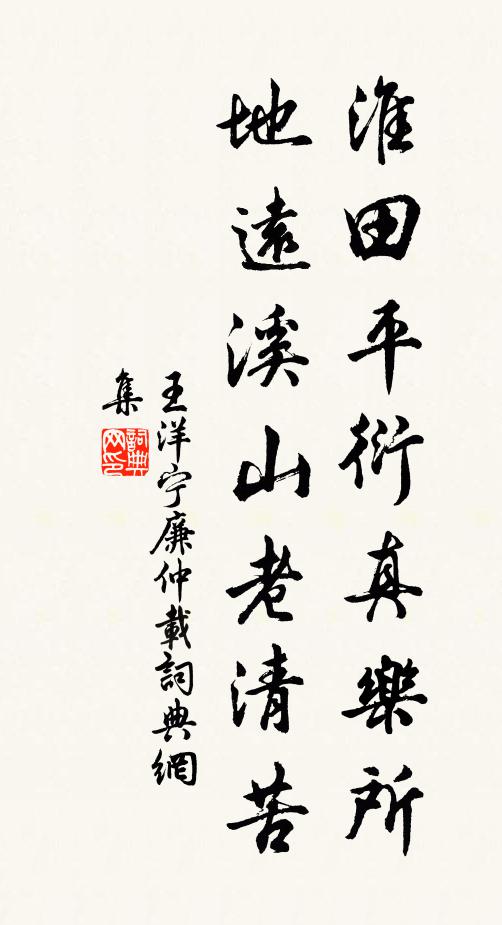 淮田平衍真樂所
地遠溪山老清苦
王洋宁廉仲載詞典網
集
詞典网印